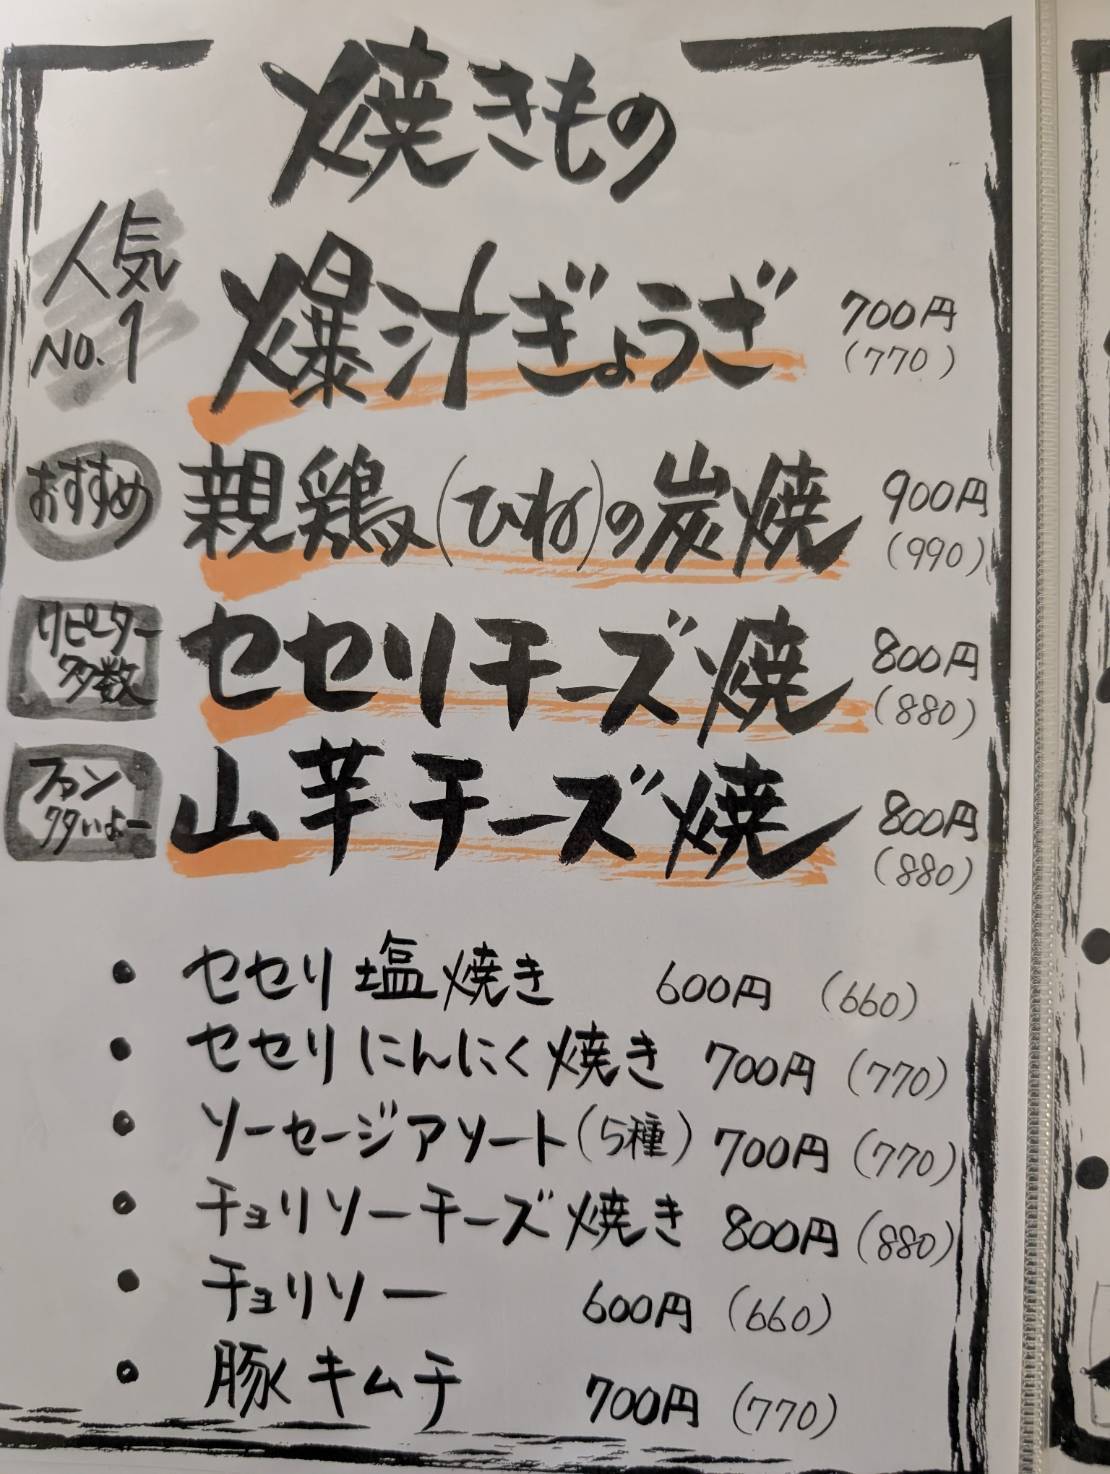 焼きもの
人気
No.1
爆汁ぎょうざ 700円
(770)
おすすめ
親鶏(ひね)の炭焼 900円
(990)
リピーター
多数
セセリチーズ焼 800円
(880)
ファン
タタいよー
山芋チーズ焼 800円
(880)
・ セセリ塩焼き 600円 (660)
・ セセリにんにく焼き 700円 (770)
・ ソーセージアソート(5種) 700円 (770)
・ チョリソーチーズ焼き 800円 (880)
・ チョリソー 600円 (660)
・ 豚キムチ 700円 (770)